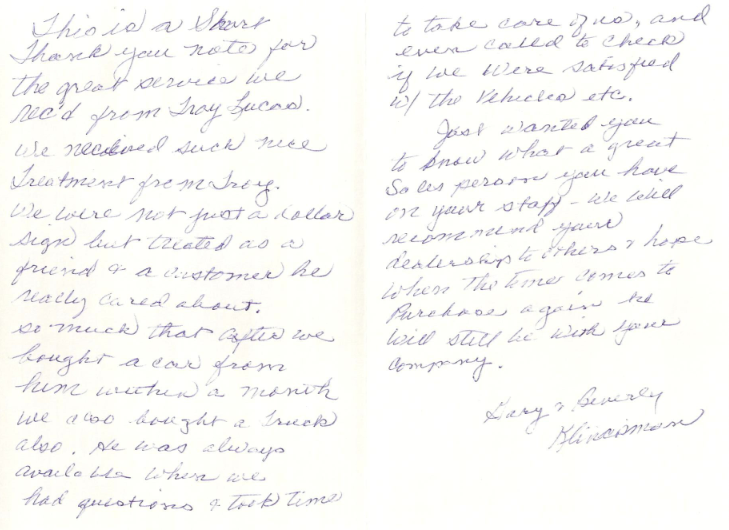 This is a Short
Thank you note for
the great service we
rec'd from Troy Lucas.
We received such nice
Treatment from Troy.
We were not just a dollar
sign but treated as a
friend & a customer he
really cared about.
so much that after we
bought a car from
him within a month
we also bought a Truck
also. He was always
available when we
had questions & took time
to take care of us, and
even called to check
if we were satisfied
w/ the vehicles etc.
Just wanted you
to know what a great
Sales person you have
on your staff - we will
recommend your
dealership to others & hope
when the time comes to
Purchase again he
will still be with your
company.
Gary & Beverly